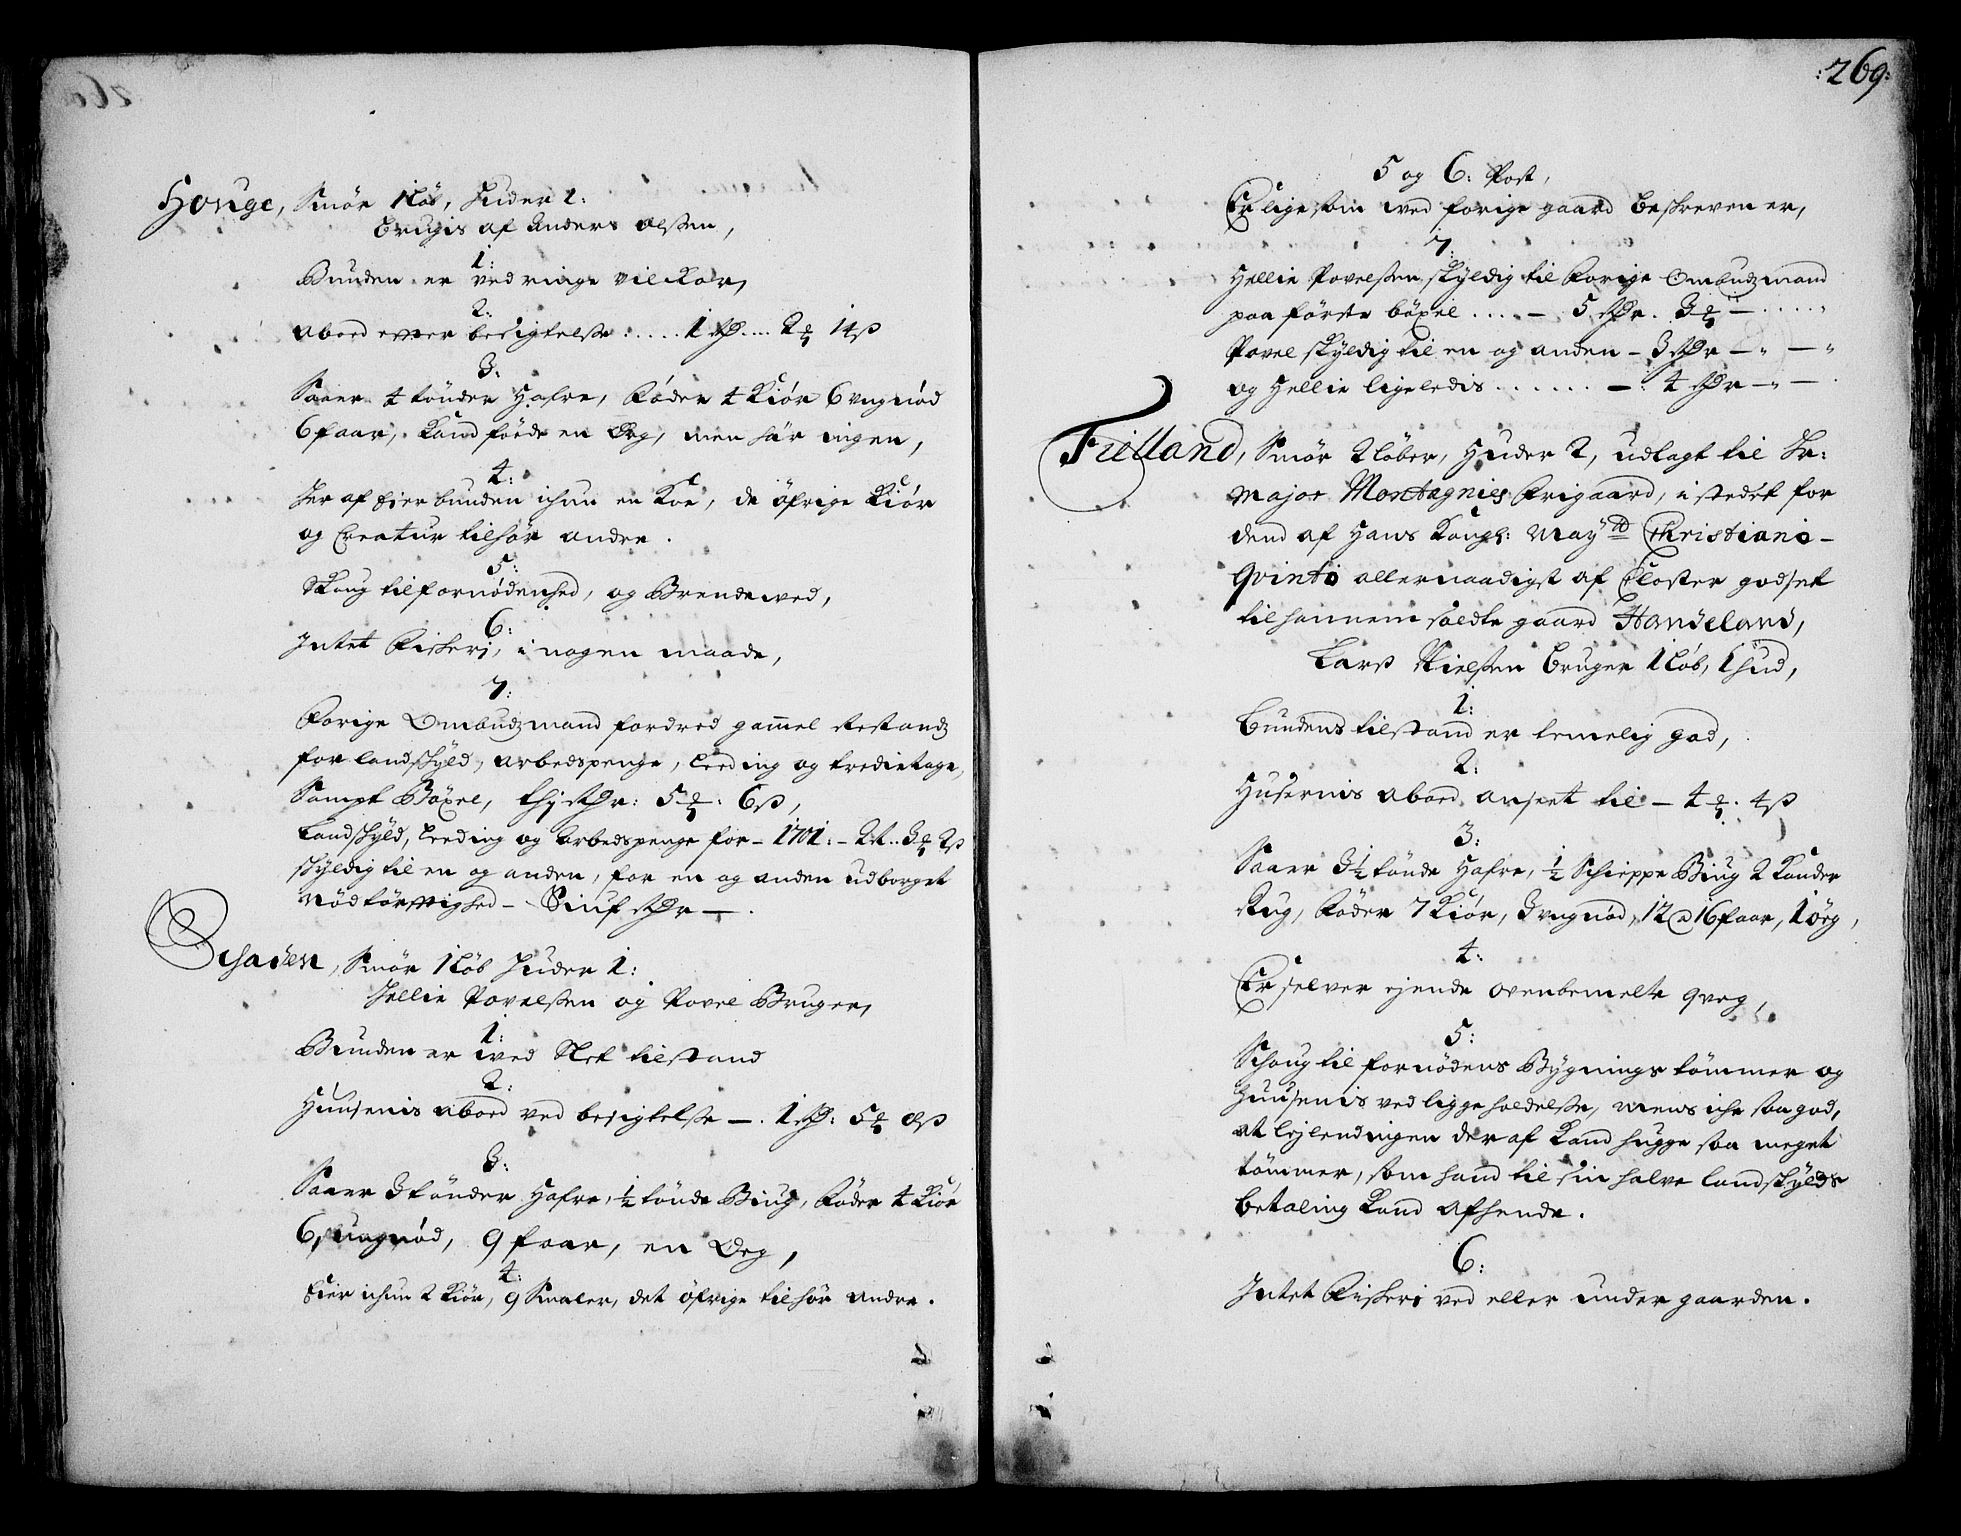 Houge, Smör 1 löb, Huder 1:
Brugis af Anders Olßen,
1:
Bunden er ved ringe vilkaar,
2:
Aboed efter besigtelse: ..... 1 rdr .... 2 ꝼ 14 ß
3:
Saaer 4 tönder Hafre, föder 4 Kiör 6 ungnöd
6 faar, kand föede en Örg, men har ingen,
4:
Her af Eier bunden ichun en Koe, de öfrige Kiör
og Creatur tilhör andre.
5:
Skoug til fornödenhed, og Brendeved,
6:
Intet Fiskeri, i nogen maade,
7:
Forige Ombudzmand fordred gam̄el Restandz
for landskyld, arbedspenge, leeding og tredietage,
Sampt Böxel, thj rdr: 5 ꝼ: 6 ß,
Landskyld, leeding og Arbedspenge for - 1701: - 2 rt .. 3 ꝼ 2 ß
skyldig til en og anden, for en og anden udborget
Nödtörftighed - Siuf rdr -.
Schaden, Smör 1 löb Huder 1:
Hellie Povelßen og Povel Bruger,
1:
Bunden er wed Slet tilstand
2:
Huusenis aboed ved besigtelse - . 1 rdr: 5 ꝼ 8 ß
3:
Saaer 3 tönder Hafre, ½ tönde Biug, föder 4 Kiör
6 ungnöd, 9 faar, en Örg,
4:
Eier ichun 2 Kiör, 9 Smaler, det öfrige tilhör andre.
:269:
5 og 6: Post,
Er ligesom wed forige gaard beskreven er,
7:
Hellie Povelßen skyldig til forige Ombudzmand
paa förste böxel .... - 5 rdr. 3 ꝼ - ....
Povel skyldig til en og anden - 3 rdr - " - "
og Hellie ligeledis ...... - . 4 rdr - " - .
Fielland, Smör 2 löber, Huder 2, udlagt til Hr:
Major Montagnies frigaard, i stedet for
dend af Hans Kongl: May:tt Christiano-
Qvinto allernaadigst af Closter godset
til hannem soldte gaard Handeland,
Larß Nielßen bruger 1 löb, 1 hud,
1:
Bundens tilstand er temelig god,
2:
Husernis aboed anseet til - 4 ꝼ. 4 ß
3:
Saaer 3½ tönde Hafre, ½ Schieppe Biug 2 Kander
Rug, föder 7 Kiör, 3 ungnöd, 12 a 16 faar, 1 örg,
4:
Er selver ejende ovenbemelte qveg,
5:
Schoug til fornödens Bygnings tömmer og
Huusenis vedligge holdelse, mens iche saa god,
at lejlendingen der af kand hugge saa meget
tömmer, som hand til sin halve landskylds
betaling kand afhende.
6:
Intet Fiskeri ved eller under gaarden.